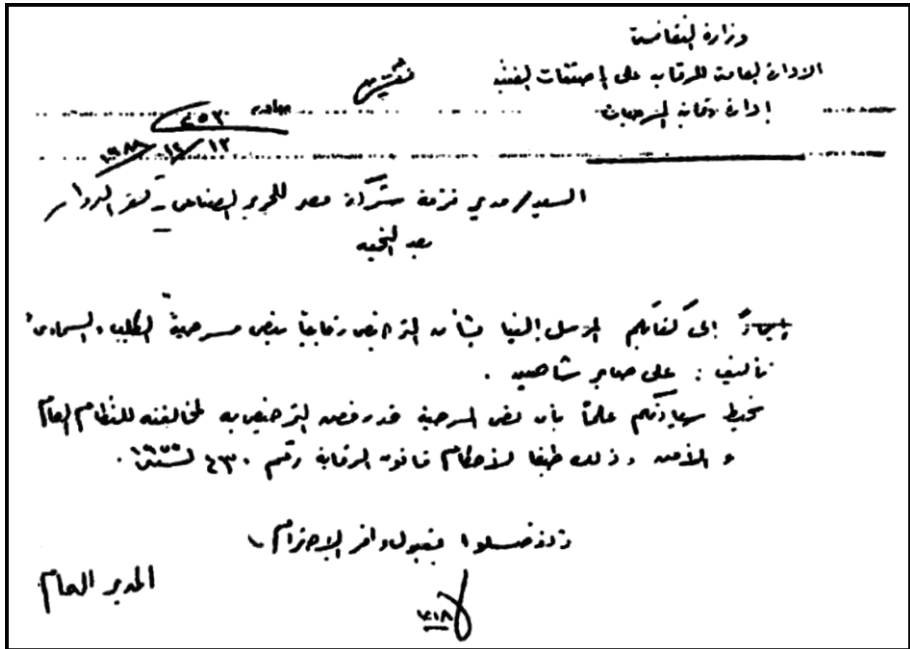 وزارة الثقافة
الإدارة العامة للرقابة على المصنفات الفنية
إدارة رقابة المسرحيات
صادر ٢٥٣
١٩٨٨/١٢/١٢
السيد / مدير فرقة شركة مصر للحرير الصناعى - كفر الدوار
بعد التحية
إيماءً إلى كتابكم المرسل إلينا بشأن الترخيص رقابياً بنص مسرحية "الكلب السماوى"
تأليف : على صابر شاهين .
نحيط سيادتكم علماً بأن نص المسرحية قد رفض الترخيص به لمخالفته للنظام العام
و الأمن وذلك طبقا لأحكام قانون الرقابة رقم ٤٣٠ لسنة ١٩٥٥ .
وتفضلوا بقبول وافر الاحترام
المدير العام